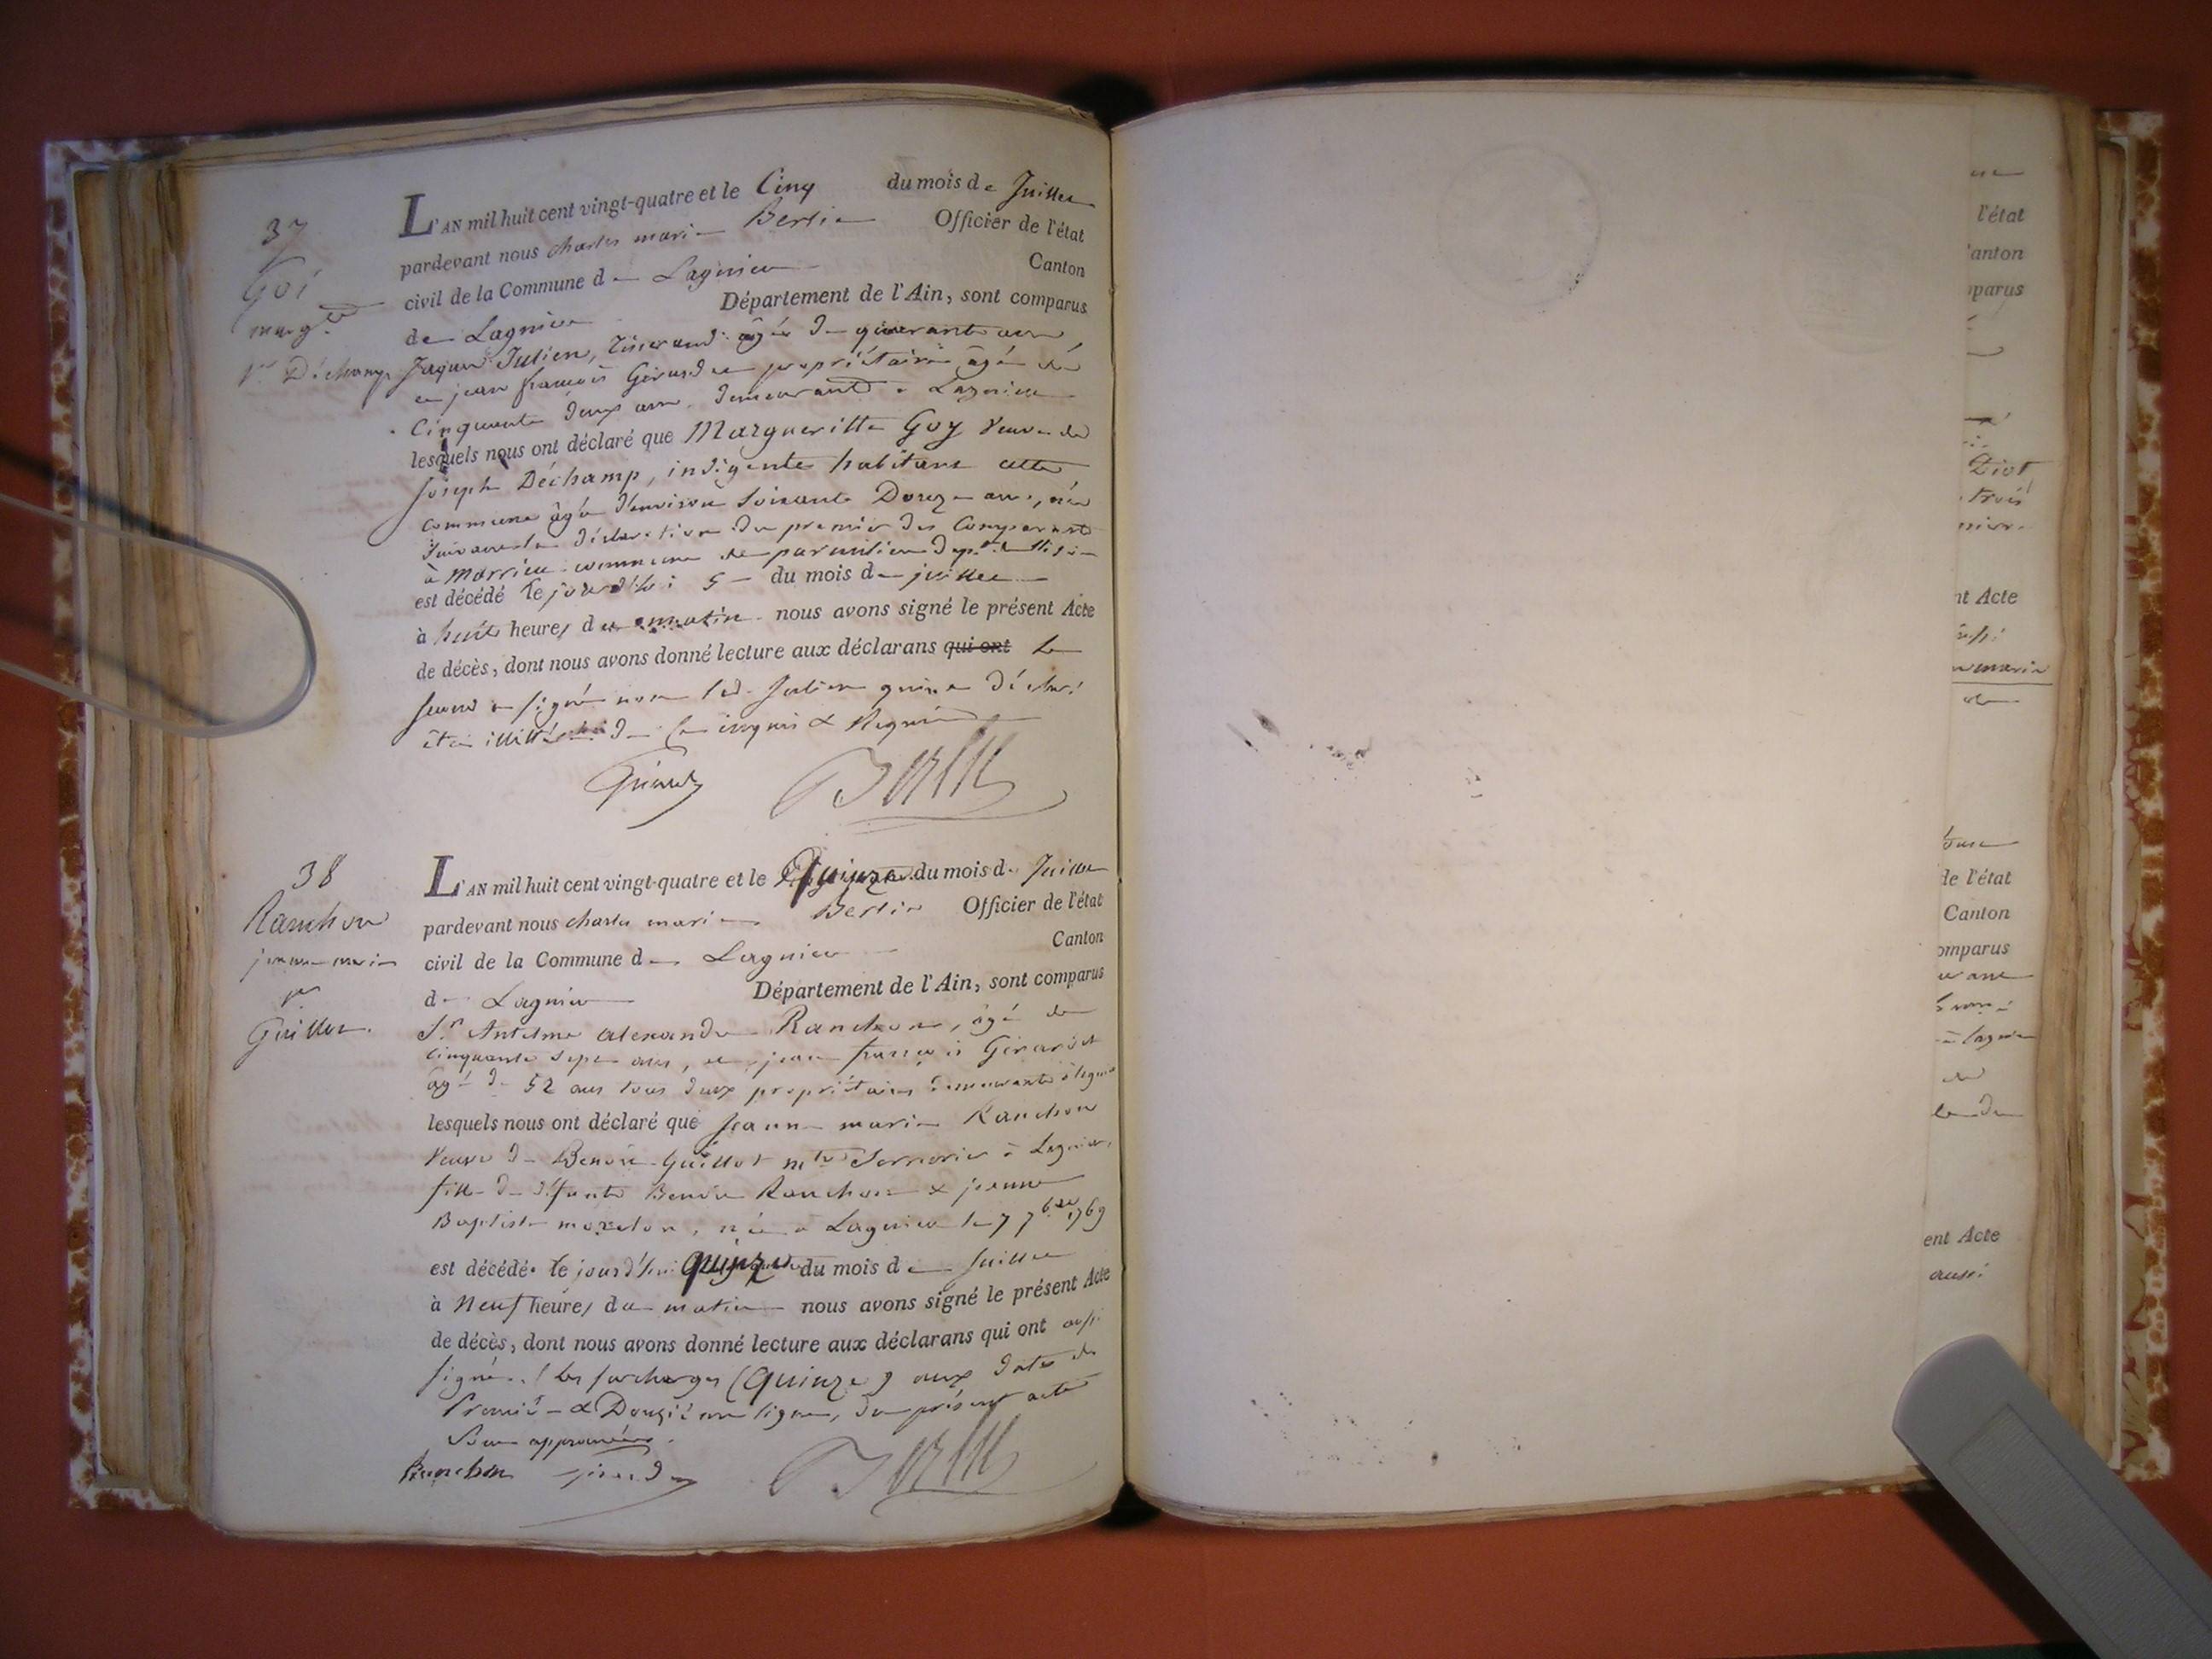 37
Goi
marg.te
v.e Déchamp
L'AN mil huit cent vingt-quatre et le Cinq du mois de Juillet
pardevant nous charles marie Bertin Officier de l'état
civil de la Commune de Lagnieu Canton
de Lagnieu Département de l'Ain, sont comparus
Jaques Julien, tisserand âgé de quarante ans
et jean françois Girardet propriétaire âgé de
Cinquante deux ans demeurants à Lagnieu
lesquels nous ont déclaré que Margueritte Goy veuve de
Joseph Déchamp, indigente habitant cette
commune âgée d'environ soixante Douze ans, née
suivant la déclaration du premier des Comparants
à Marrieu commune de parmilieu
est décédé le jourd'hui 5 du mois de juillet
à huit heures du matin nous avons signé le présent Acte
de décès, dont nous avons donné lecture aux déclarans qui ont le
second a signé non led. Julien qui a déclaré
être illitéré de ce enquis & Requis
38
Ranchon
jeanne marie
v.e
Guillot
L'AN mil huit cent vingt-quatre et le Quinze du mois de Juillet
pardevant nous charles marie Bertin Officier de l'état
civil de la Commune de Lagnieu Canton
de Lagnieu Département de l'Ain, sont comparus
S.r Antelme alexandre Ranchon, âgé de
cinquante sept ans, et jean françois Girardet
âgé de 52 ans tous deux propriétaires demeurants à Lagnieu
lesquels nous ont déclaré que Jeanne marie Ranchon
veuve de Benoit Guillot m.tre Serrurier à Lagnieu,
fille de défunts Benoit Ranchon & jeanne
Baptiste morelon, née à Lagnieu le 7 7bre 1769
est décédée le jourd'hui quinze du mois de Juillet
à Neuf heures du matin nous avons signé le présent Acte
de décès, dont nous avons donné lecture aux déclarans qui ont aussi
signé. Les surcharges (Quinze) aux dates des
Première & Douzième lignes, du présent acte
Sont approuvées.
Ranchon
l'état
anton
parus
Diot
trois
nt Acte
marie
de l'état
Canton
omparus
ent Acte
aussi